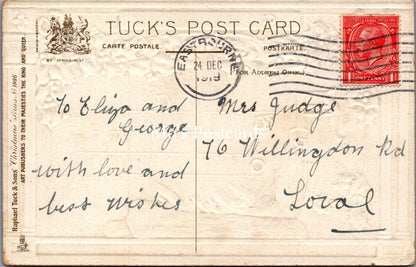 TUCK'S POST CARD
CARTE POSTALE.
POSTKARTE.
BY APPOINTMENT
(FOR ADDRESS ONLY.)
EASTBOURNE
24 DEC
1919
ONE PENNY
Raphael Tuck & Sons' "Christmas" Series
ART PUBLISHERS TO THEIR MAJESTIES THE KING AND QUEEN
To Eliza and
George
with love and
best wishes
Mrs Judge
76 Willingdon Rd
Local